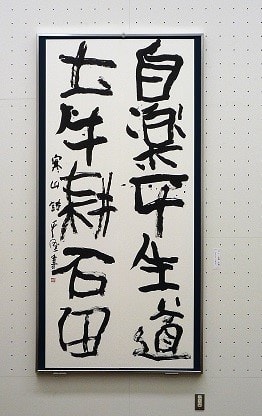 自楽平生道
土牛耕石田
寒山詩 書